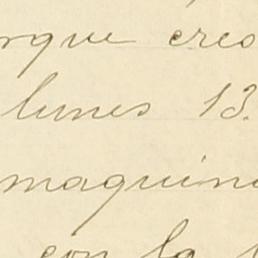 rque creo
lunes 13.
maquina
con la